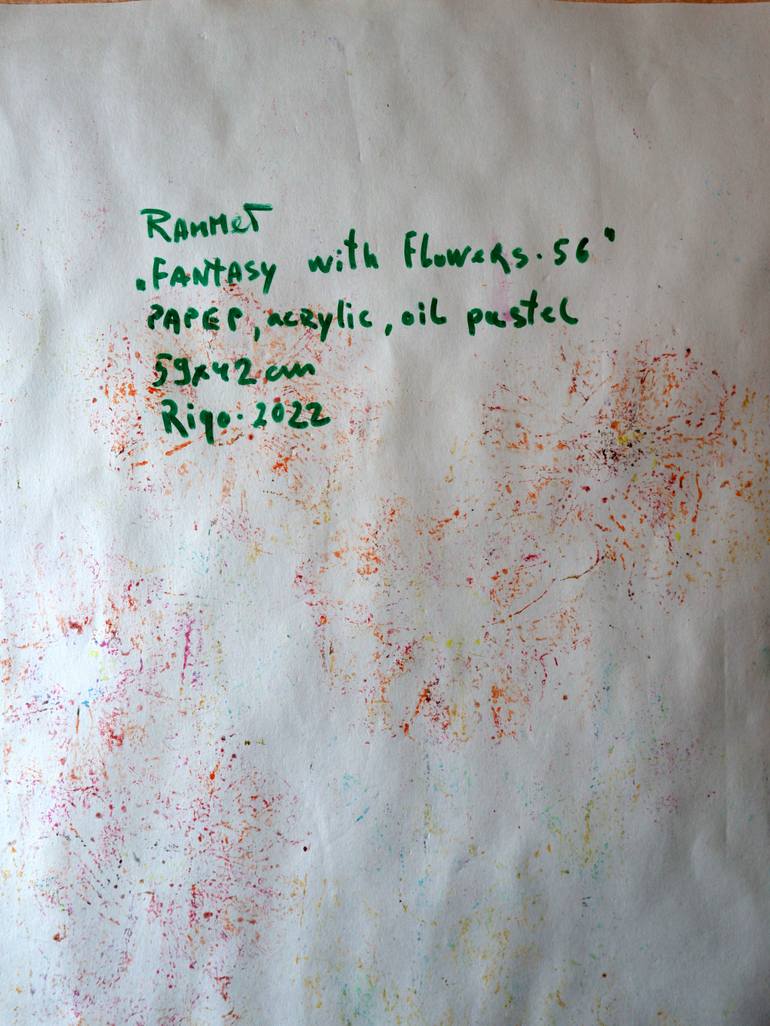 Rahmet
„Fantasy with Flowers.56"
PAPEP, acrylic, oil pastel
59x42 cm
Riga.2022